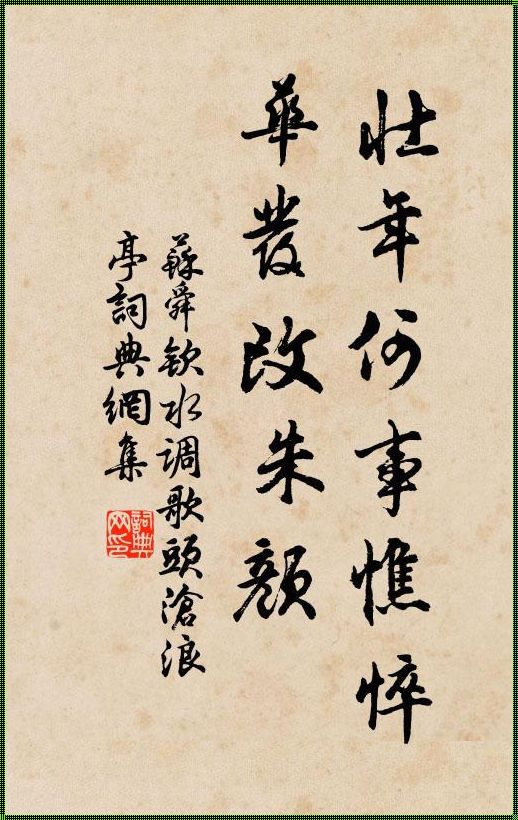 壮年何事憔悴
華發改朱顏
蘇舜欽水调歌頭滄浪
亭詞典網集
詞典
网印